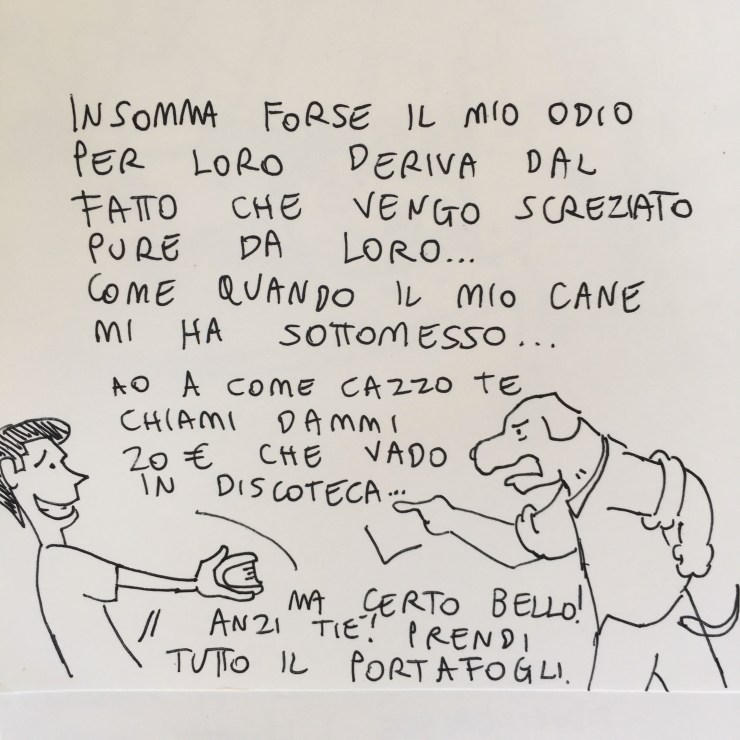 INSOMMA FORSE IL MIO ODIO
PER LORO DERIVA DAL
FATTO CHE VENGO SCREZIATO
PURE DA LORO...
COME QUANDO IL MIO CANE
MI HA SOTTOMESSO...
AO A COME CAZZO TE
CHIAMI DAMMI
20 € CHE VADO
IN DISCOTECA...
MA CERTO BELLO!
ANZI TIE'! PRENDI
TUTTO IL PORTAFOGLI.